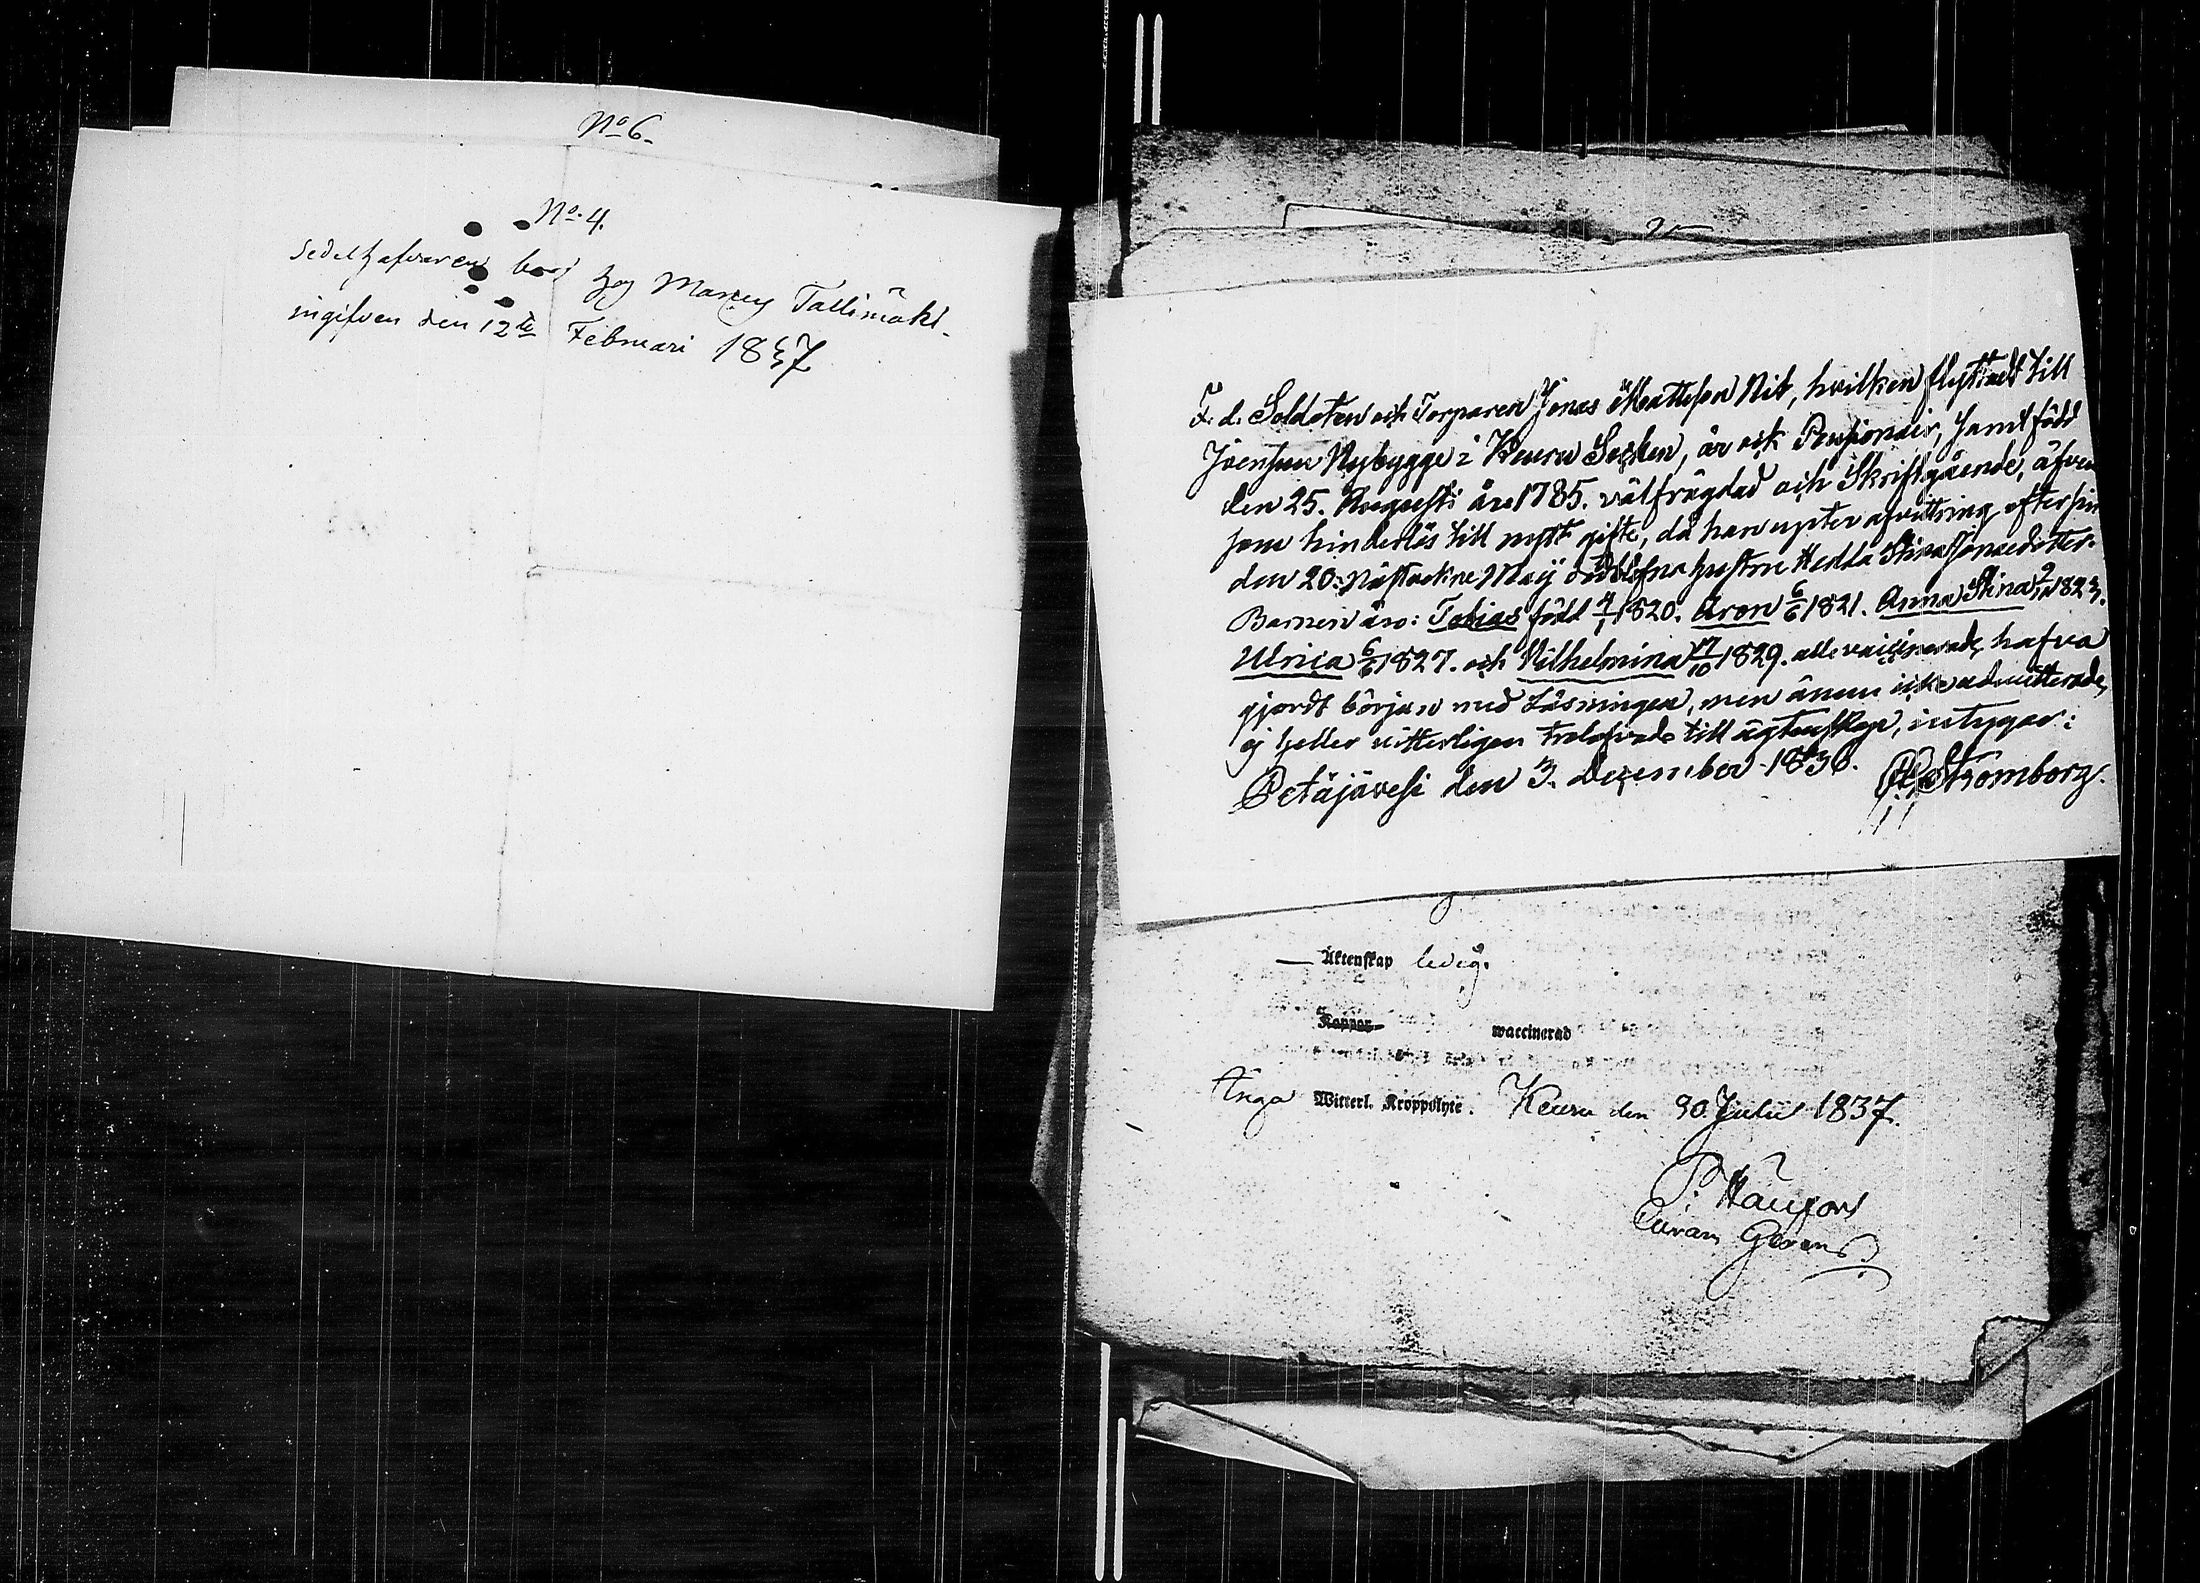 No 6.
No. 4.
Sedelhafvaren bor hos Tallimäki
ingifven den 12te Februari 1837
F. d. Soldaten och Torparen Jonas Mattsson Nit, hvilken flyttadt till
Joensuu Nybygge i Keuru Socken, är ock Pensionair, samt född
den 25. Augusti år 1785. välfrägdad och Skriftgående, äfven
som hinderlös till nytt gifte, då han upter afvittring efter sin
den 20. Maij dödblefna hustru Hedda Stina Jonaedotter.
Barnen äro: Tobias född 4/1 1820. Aron 6/6 1821. Anna Stina 1823.
Ulrica 6/6 1827. och Vilhelmina 17/10 1829. alla vaccinerade, hafva
gjordt början med Läsningen, men ännu icke admitterade,
ej heller vitterligen trolofvade till ägtenskap, intygar:
Petäjävesi den 3. December 1836. Stromborg.
— Äktenskap ledig.
Koppor waccinerad
Inga Witterl. Kroppslyte. Keuru den 30 Julii 1837.
P.
Curam Gerens